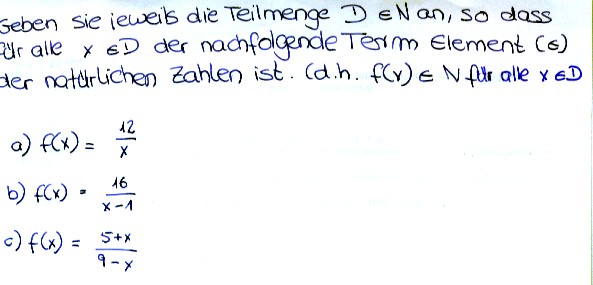 Geben Sie jeweils die Teilmenge D ∈ N an, so dass
für alle x ∈ D der nachfolgende Term Element (∈)
der natürlichen Zahlen ist. (d.h. f(x) ∈ N für alle x ∈ D
a) f(x) = 12/x
b) f(x) = 16/(x-1)
c) f(x) = (5+x)/(9-x)